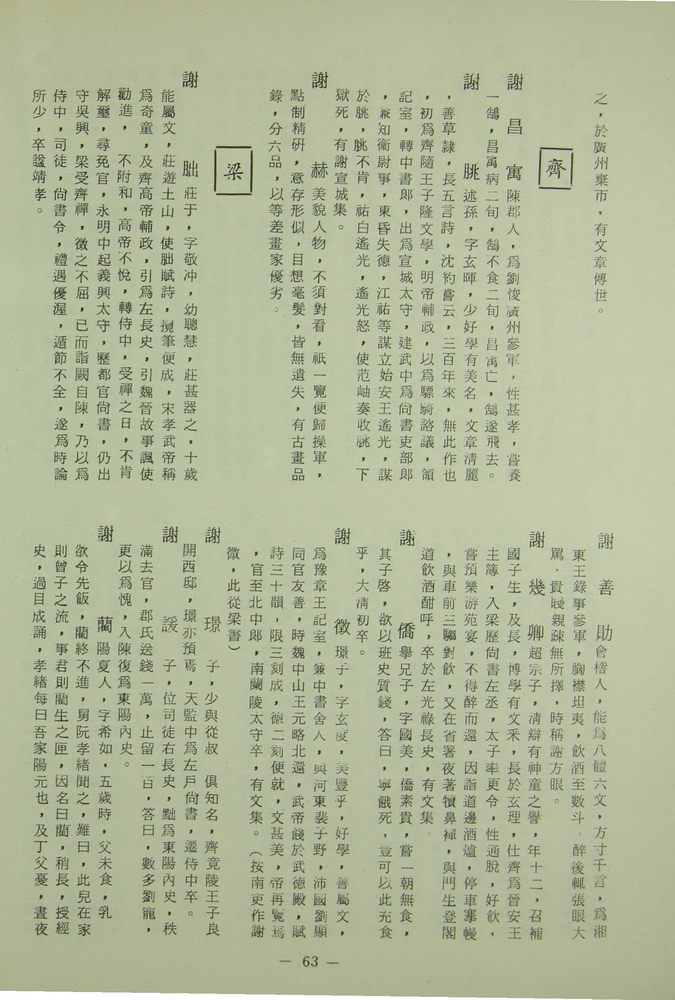 之，於廣州棄市，有文章傳世。
齊
謝昌寓陳郡人，為劉悛廣州參軍，性甚孝，嘗養
一鵠，昌寓病二旬，鵠不食二旬，昌寓亡，鵠遂飛去。
謝朓述孫，字玄暉，少好學有美名，文章清麗
，善草隸，長五言詩，沈約嘗云，三百年來，無此作也
，初為齊隨王子隆文學，明帝輔政，以為驃騎諮議，領
記室，轉中書郎，出為宣城太守，建武中為尚書吏部郎
，兼知衛尉事，東昏失德，江祐等謀立始安王遙光，謀
於朓，朓不肯，祐白遙光，遙光怒，使范岫奏收朓，下
獄死，有謝宣城集。
謝赫美貌人物，不須對看，祇一覽便歸操軍，
點制精研，意存形似，目想毫髮，皆無遺失，有古畫品
錄，分六品，以等差畫家優劣。
梁
謝朏莊于，字敬冲，幼聰慧，莊甚器之，十歲
能屬文，莊遊土山，使朏賦詩，攬筆便成，宋孝武帝稱
為奇童，及齊高帝輔政，引為左長史，引魏晉故事諷使
勸進，不附和，高帝不悅，轉侍中，受禪之日，不肯
解璽，尋免官，永明中起義興太守，歷都官尚書，仍出
守吳興，梁受齊禪，徵之不屈，已而詣闕自陳，乃以為
侍中，司徒，尚書令，禮遇優渥，遁節不全，遂為時論
所少，卒諡靖孝。
謝善勛會稽人，能為八體六文，方寸千言，為湘
東王錄事參軍，胸襟坦夷，飲酒至數斗，醉後輒張眼大
罵、貴賤親疎無所擇，時稱謝方眼。
謝幾卿超宗子，清辯有神童之譽，年十二，召補
國子生，及長，博學有文釆，長於玄理，仕齊為晉安王
主簿，入梁歷尚書左丞，太子率更令，性通脫，好飲，
嘗預樂游苑宴，不得醉而還，因詣道邊酒壚，停車褰幔
，與車前三騶對飲，又在省署夜著犢鼻褌，與門生登閣
道飲酒酣呼，卒於左光祿長史，有文集。
謝僑舉兄子，字國美，僑素貴，嘗一朝無食，
其子啓，欲以班史質錢，答曰，寧餓死，豈可以此充食
乎，大清初卒。
謝徵璟子，字玄度，美豐乎，好學，善屬文，
為豫章王記室，兼中書舍人，與河東裴子野，沛國劉顯
同官友善，時魏中山王元略北還，武帝餞於武德殿，賦
詩三十韻，限三刻成，徵二刻便就，文甚美，帝再覽焉
，官至北中郎，南蘭陵太守卒，有文集。（按南吏作謝
微，此從梁書）
謝璟　子，少與從叔　俱知名，齊竟陵王子良
開西邸，璟亦預焉，天監中為左戶尚書，遷侍中卒。
謝諼　子，位司徒右長史，黜為東陽內史，秩
滿去官，郡氏送錢一萬，止留一百，答曰，數多劉寵，
更以為愧，入陳復為東陽內史。
謝藺陽夏人，字希如，五歲時，父未食，乳
欲令先飯，藺終不進，舅阮孝緒聞之，難曰，此兒在家
則曾子之流，事君則藺生之匪，因名曰藺，稍長，授經
史，過目成誦，孝緒每曰吾家陽元也，及丁父憂，晝夜
— 63 —